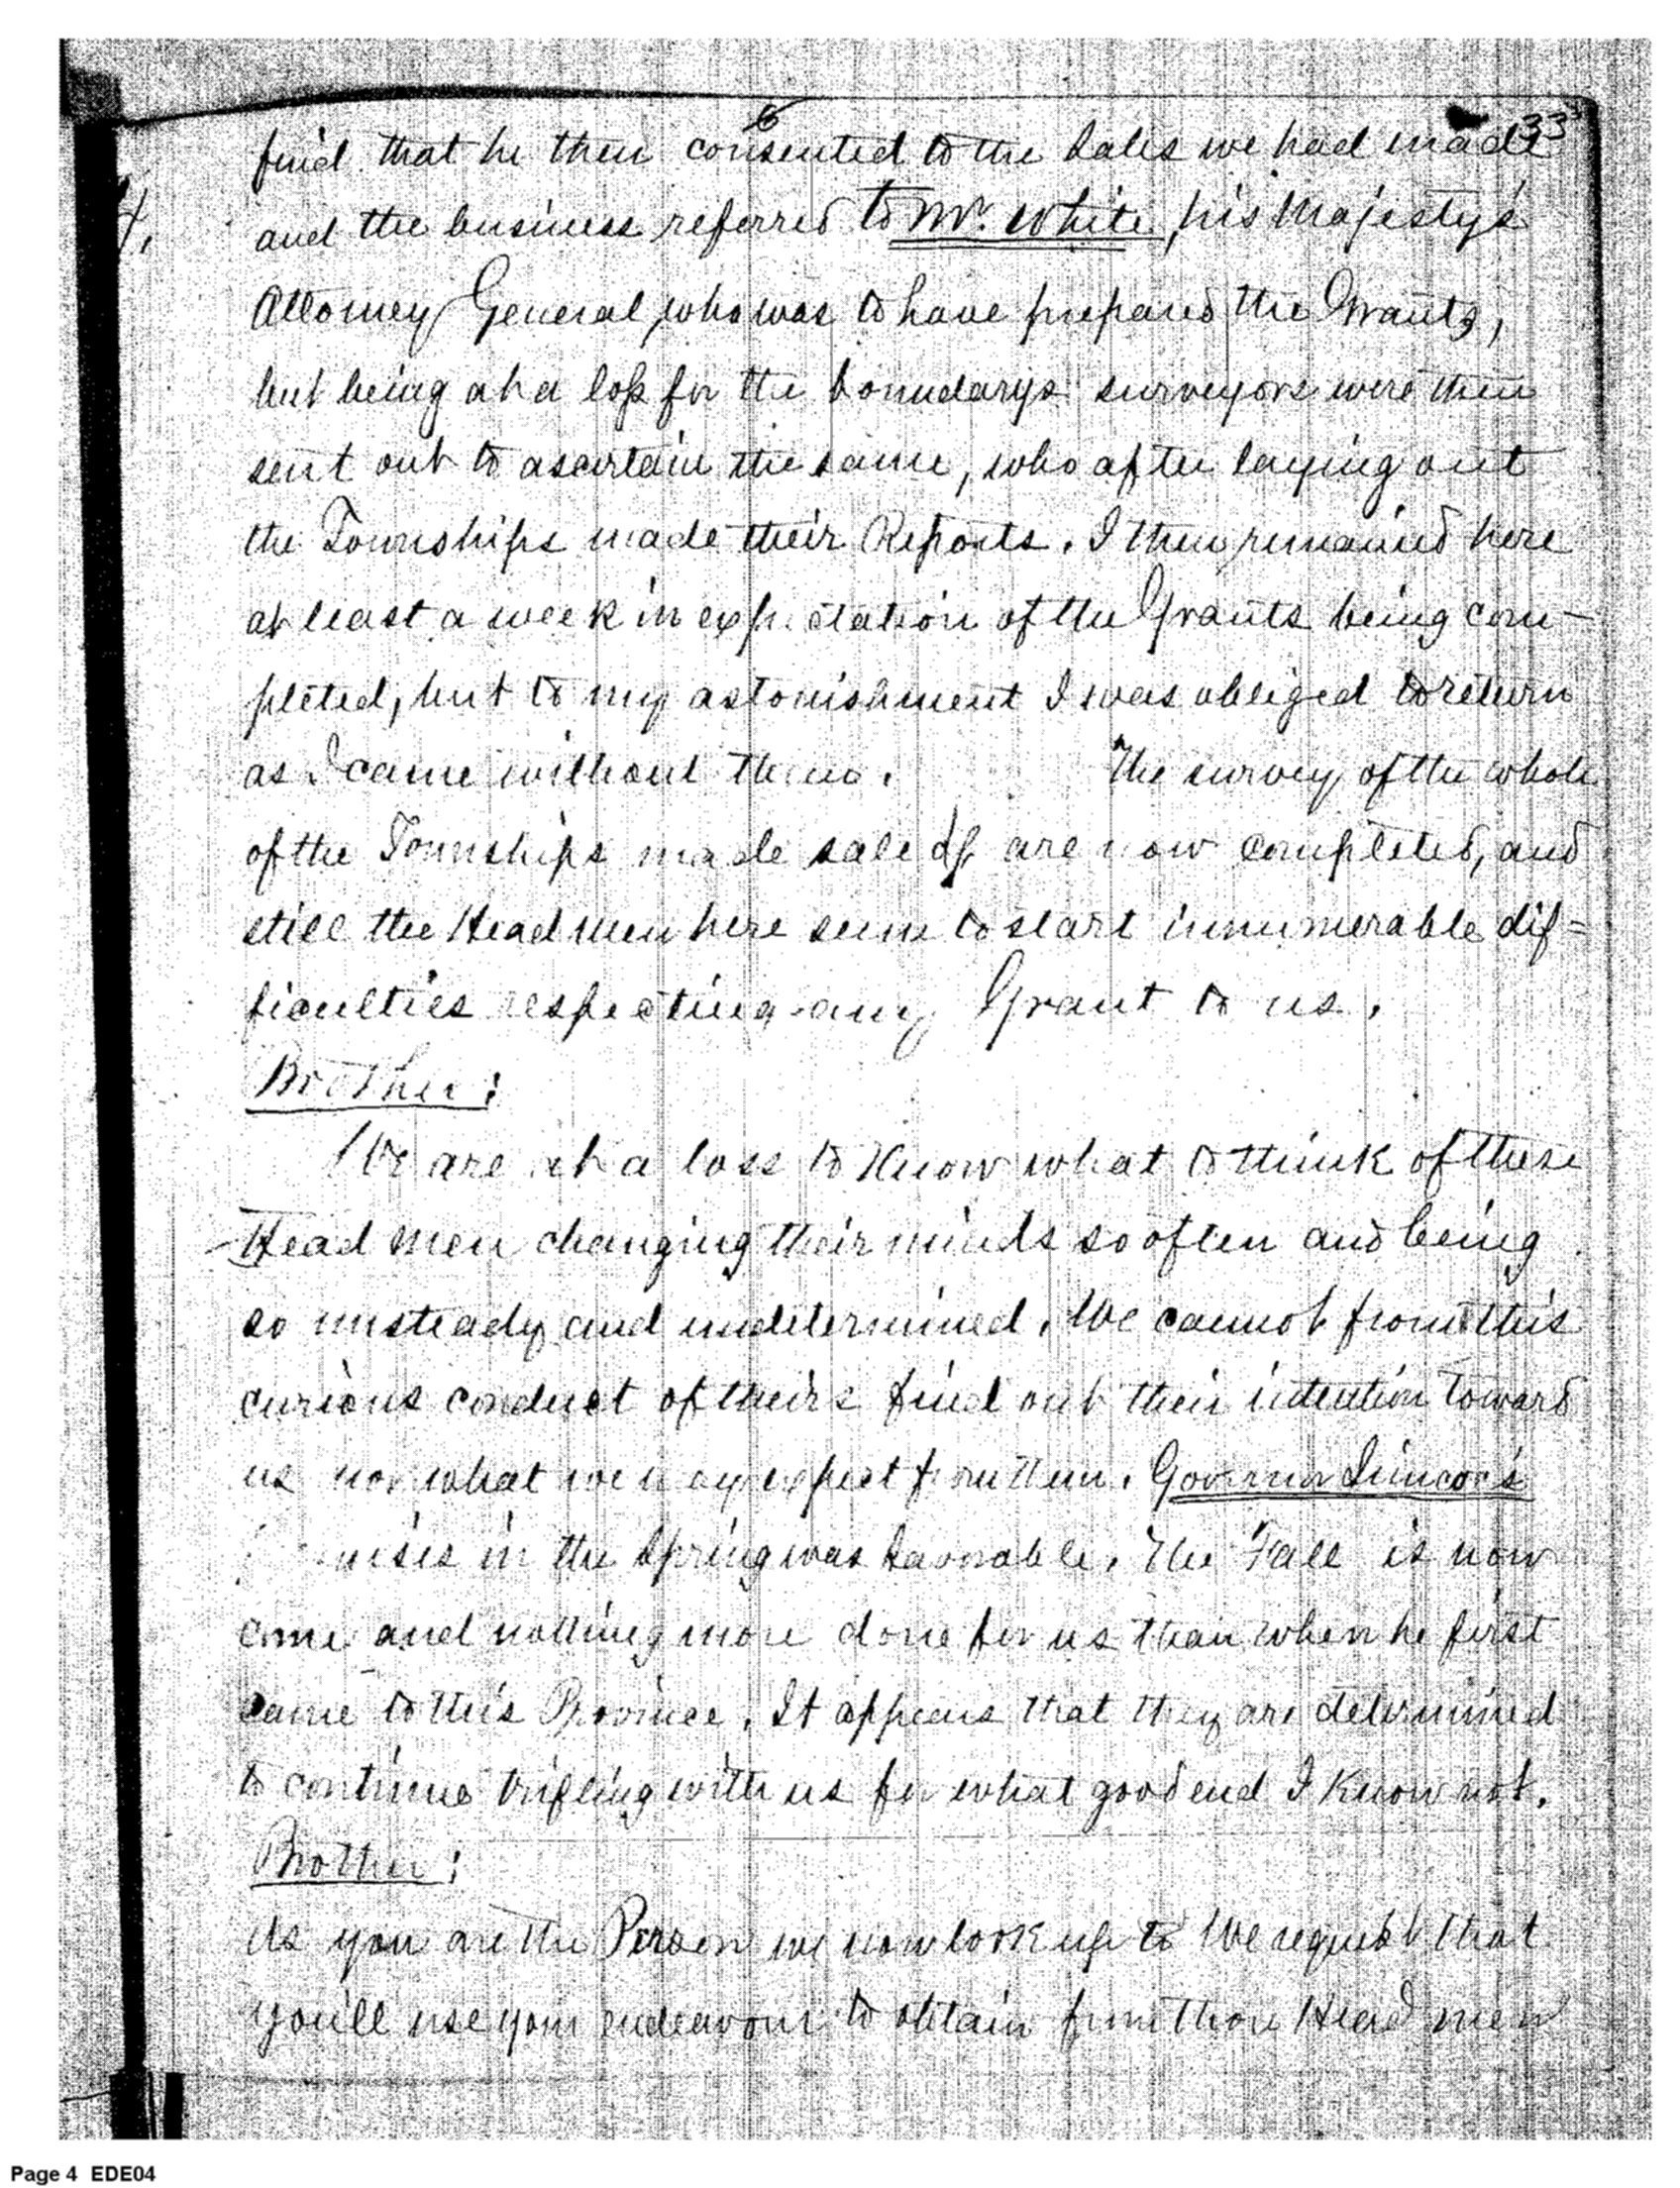 6
333
find that he then consented to the Sales we had made
4.
and the business referred to Mr. White, his Majesty's
Attorney General, who was to have prepared the Grants,
but being at a loss for the boundarys surveyors were then
sent out to ascertain the same, who after laying out
the Townships made their Reports. I then remained here
at least a week in expectation of the Grants being com-
pleted, but to my astonishment I was obliged to return
as I came without them. The survey of the whole
of the Townships made sale of are now completed, and
still the Head men here seem to start innumerable dif=
ficulties respecting any Grant to us.
Brother:
We are at a loss to Know what to think of these
Head men changing their minds so often and being
so unsteady and undetermined. We cannot from this
curious conduct of theirs find out their intention toward
us nor what we may expect from them. Governor Simcoe's
in the Spring was favorable. The Fall is now
come and nothing more done for us than when he first
came to this Province. It appears that they are determined
to continue trifling with us for what good end I Know not.
Brother:
As you are the Person we now look up to We request that
you'll use your endeavour to obtain from those Head men
Page 4 EDE04